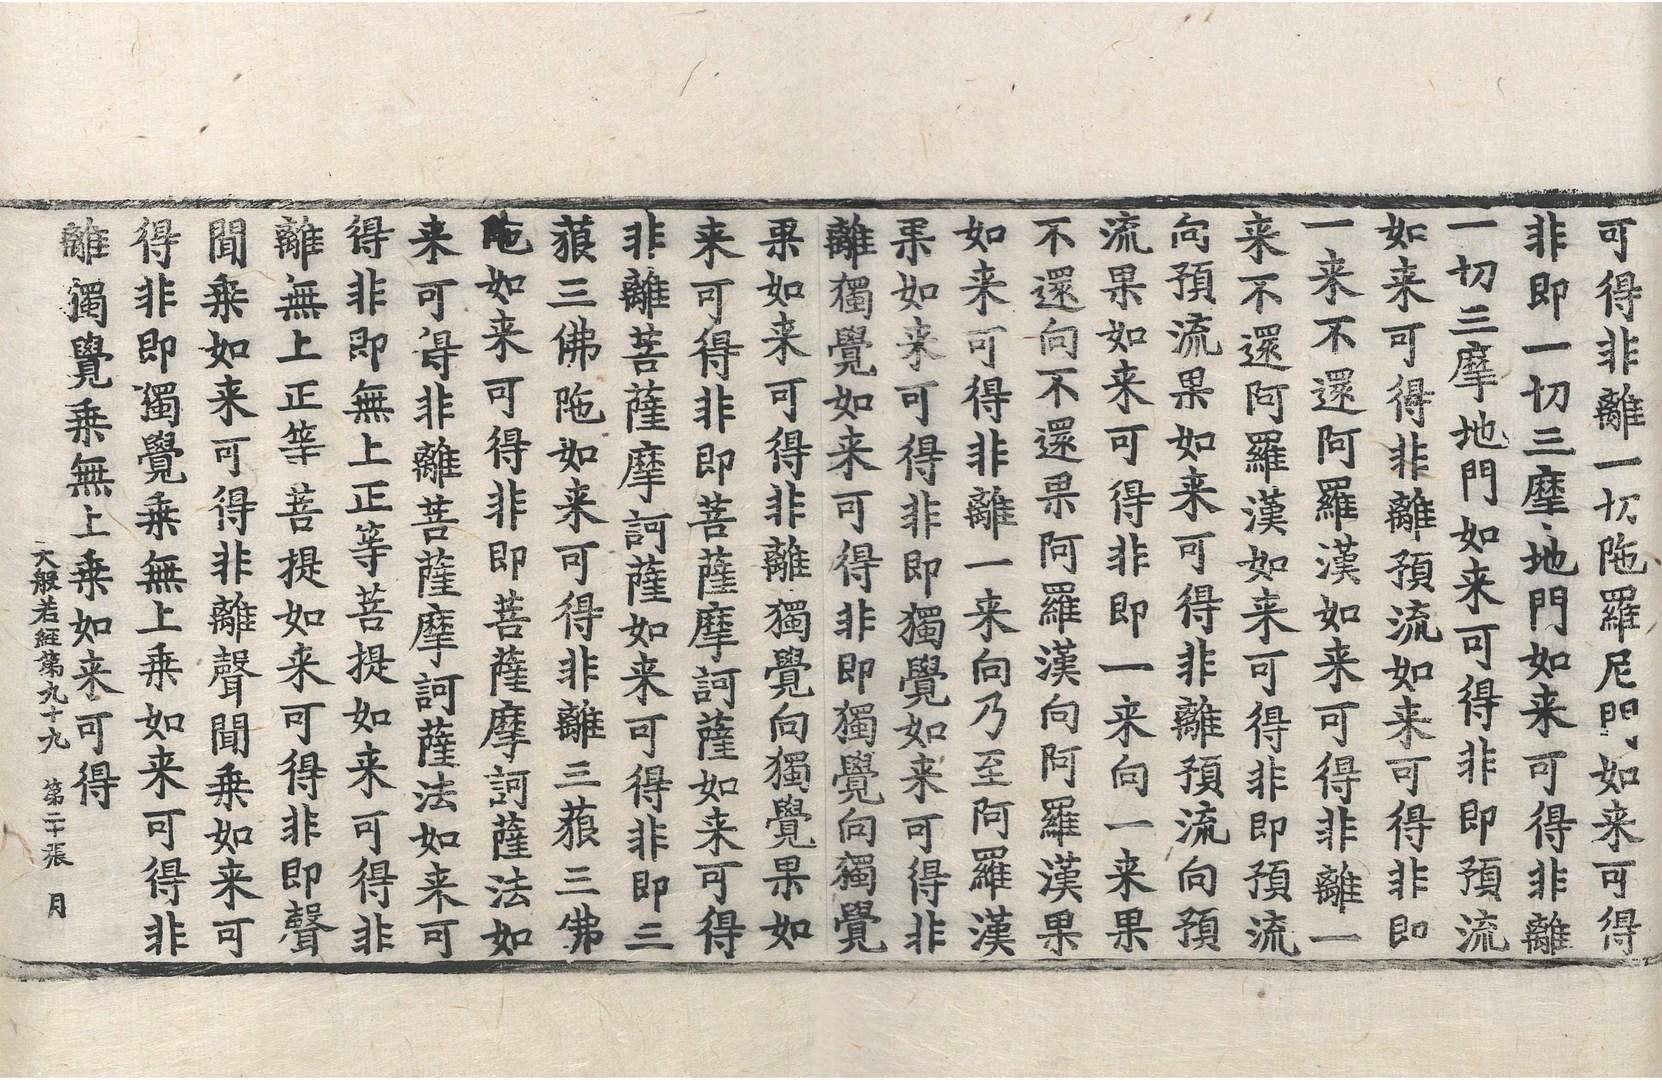 可得非離一切陁羅尼門如来可得
非即一切三摩地門如来可得非離
一切三摩地門如来可得非即預流
如来可得非離預流如来可得非即
一来不還阿羅漢如来可得非離一
来不還阿羅漢如来可得非即預流
向預流果如来可得非離預流向預
流果如来可得非即一来向一来果
不還向不還果阿羅漢向阿羅漢果
如来可得非離一来向乃至阿羅漢
果如来可得非即獨覺如来可得非
離獨覺如来可得非即獨覺向獨覺
果如来可得非離獨覺向獨覺果如
来可得非即菩薩摩訶薩如来可得
非離菩薩摩訶薩如来可得非即三
藐三佛陁如来可得非離三藐三佛
陁如来可得非即菩薩摩訶薩法如
来可得非離菩薩摩訶薩法如来可
得非即無上正等菩提如来可得非
離無上正等菩提如来可得非即聲
聞乗如来可得非離聲聞乗如来可
得非即獨覺乗無上乗如来可得非
離獨覺乗無上乗如来可得
大般若經第九十九 第二十張 月